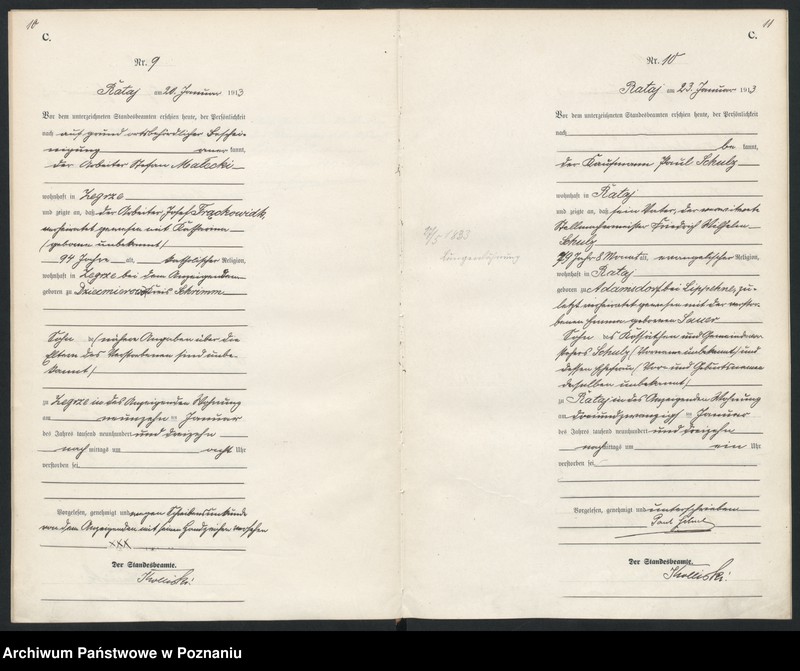 10
C.
Nr. 9
Rataj am 20. Januar 1913
Vor dem unterzeichneten Standesbeamten erschien heute, der Persönlichkeit
nach auf Grund ortsbehördlicher Beschei-
nigung aner kannt,
der Arbeiter Stefan Małecki
wohnhaft in Zegrze
und zeigte an, daß der Arbeiter Josef Frąckowiak
verheiratet gewesen mit Katharina
(geborene unbekannt)
94 Jahre alt, katholischer Religion,
wohnhaft in Zegrze bei dem Anzeigenden
geboren zu Kreis Schrimm
Sohn des (nähere Angaben über die
Eltern des Verstorbenen sind unbe-
kannt)
zu Zegrze in des Anzeigenden Wohnung
am neunzehn ten Januar
des Jahres tausend neunhundert und dreizehn
nach mittags um acht Uhr
verstorben sei
Vorgelesen, genehmigt und wegen Schreibensunkunde
von dem Anzeigenden mit seinem Handzeichen versehen
XXX
Der Standesbeamte.
11
C.
Nr. 10
Rataj am 23. Januar 1913
Vor dem unterzeichneten Standesbeamten erschien heute, der Persönlichkeit
nach
be kannt,
der Kaufmann Paul Schulz
wohnhaft in Rataj
und zeigte an, daß sein Vater, der verwitwete
Stellmachermeister Friedrich Wilhelm
Schulz
79 Jahr 8 Monat alt, evangelischer Religion,
wohnhaft in Rataj
geboren zu Adamsdorf bei zu-
letzt verheiratet gewesen mit der verstor-
benen Emma geborenen Sauer
Sohn des Kossäthen und Gemeindevor-
stehers Schulz (Vorname unbekannt) und
dessen Ehefrau (Vor- und Geburtsname
derselben unbekannt)
zu Rataj in des Anzeigenden Wohnung
am dreiundzwanzigsten Januar
des Jahres tausend neunhundert und dreizehn
nach mittags um ein Uhr
verstorben sei
Vorgelesen, genehmigt und unterschrieben
Paul Schulz
Der Standesbeamte.
Archiwum Państwowe w Poznaniu